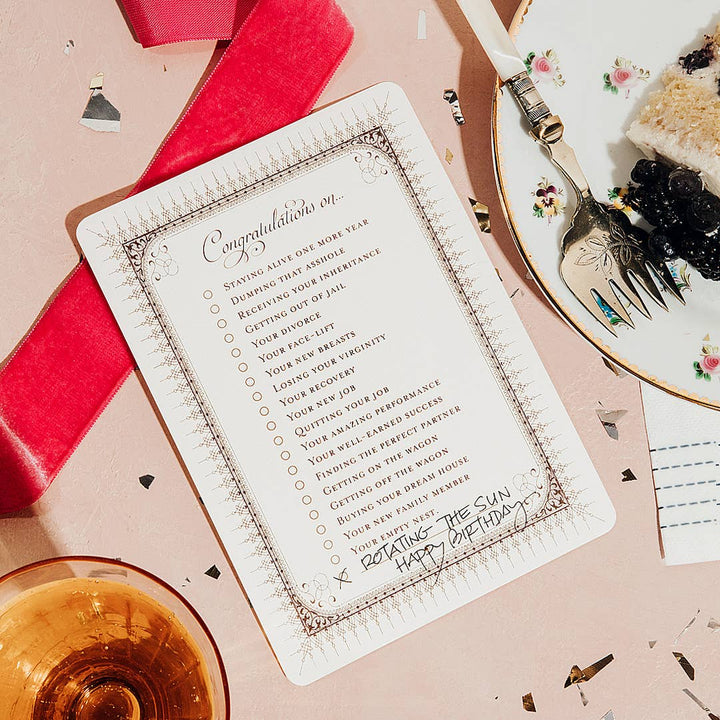 Congratulations on...
STAYING ALIVE ONE MORE YEAR
DUMPING THAT ASSHOLE
RECEIVING YOUR INHERITANCE
GETTING OUT OF JAIL
YOUR DIVORCE
YOUR FACE-LIFT
YOUR NEW BREASTS
LOSING YOUR VIRGINITY
YOUR RECOVERY
YOUR NEW JOB
QUITTING YOUR JOB
YOUR AMAZING PERFORMANCE
YOUR WELL-EARNED SUCCESS
FINDING THE PERFECT PARTNER
GETTING ON THE WAGON
GETTING OFF THE WAGON
BUYING YOUR DREAM HOUSE
YOUR NEW FAMILY MEMBER
YOUR EMPTY NEST
X ROTATING THE SUN
HAPPY BIRTHDAY